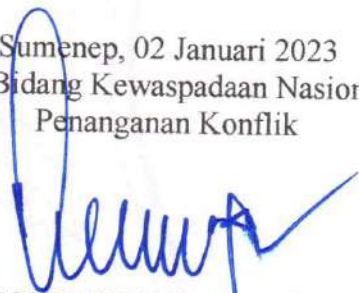 Sumenep, 02 Januari 2023
Bidang Kewaspadaan Nasion
Penanganan Konflik